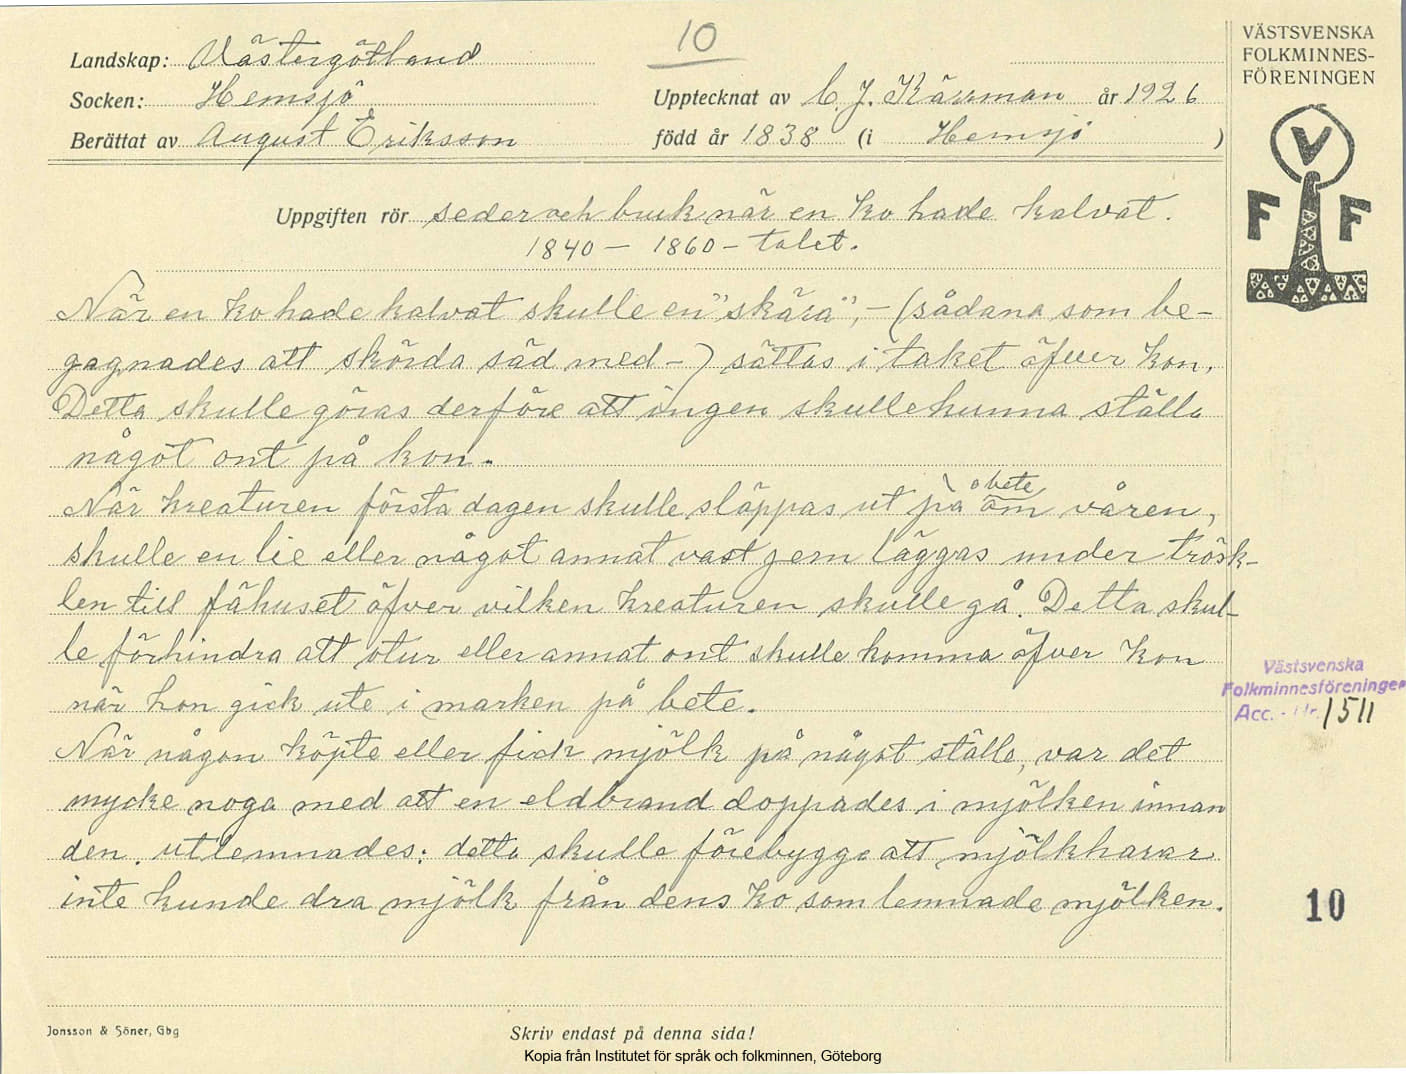 10
Landskap: Västergötland
Socken: Hemsjö
Upptecknat av C. J. Kärrman år 1926
Berättat av August Eriksson
född år 1838 (i Hemsjö )
Uppgiften rör seder och bruk när en ko hade kalvat.
1840 – 1860 – talet.
När en ko hade kalvat skulle en "skära", – (sådana som be-
gagnades att skörda säd med –) sättas i taket öfver kon.
Detta skulle göras derföre att ingen skulle kunna ställa
något ont på kon.
När kreaturen första dagen skulle släppas ut på bete om våren,
skulle en lie eller något annat vast jern läggas under trösk-
len till fähuset öfver vilken kreaturen skulle gå. Detta skul-
le förhindra att otur eller annat ont skulle komma öfver kon
när hon gick ute i marken på bete.
När någon köpte eller fick mjölk på något ställe, var det
mycke noga med att en eldbrand doppades i mjölken innan
den utlemnades; detta skulle förebygga att mjölkharar
inte kunde dra mjölk från dens ko som lemnade mjölken.
Jonsson & Söner, Gbg
Skriv endast på denna sida!
Kopia från Institutet för språk och folkminnen, Göteborg
VÄSTSVENSKA
FOLKMINNES-
FÖRENINGEN
V
F F
Västsvenska
Folkminnesföreningen
Acc. - Nr. 1511
10